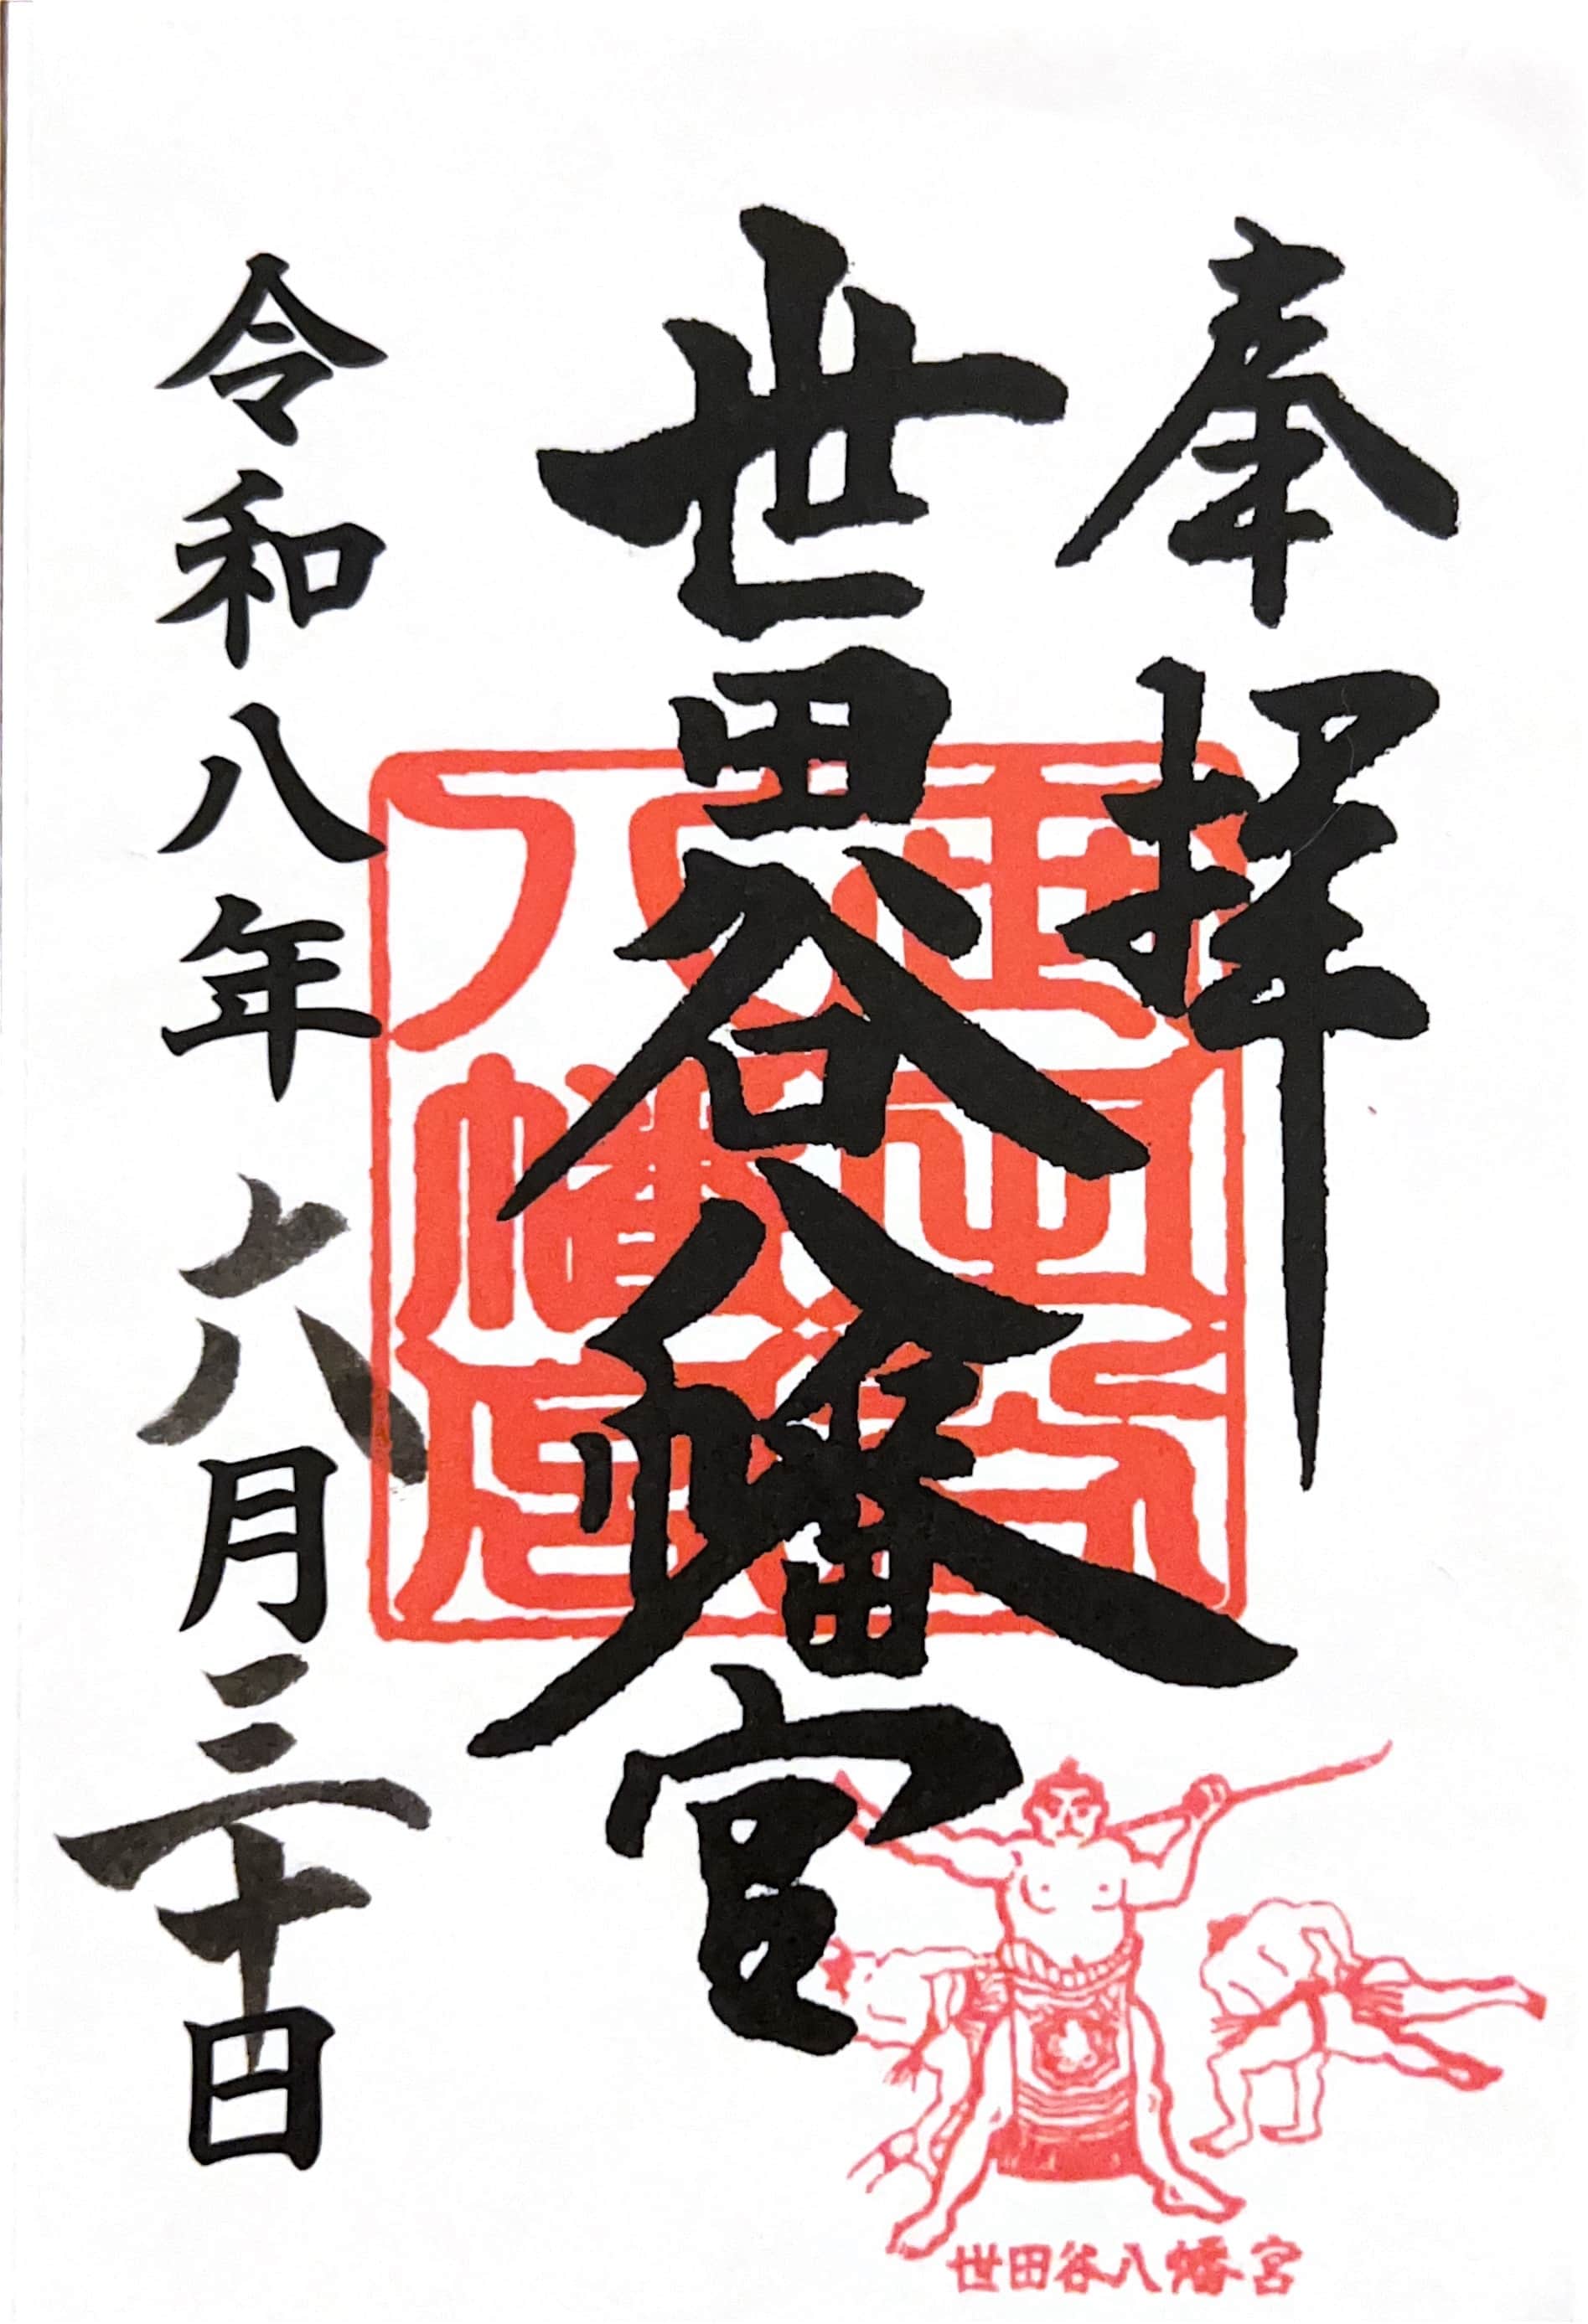 奉拝
世田谷八幡宮
令和八年六月三十日
世田谷八幡宮
世田谷八幡宮